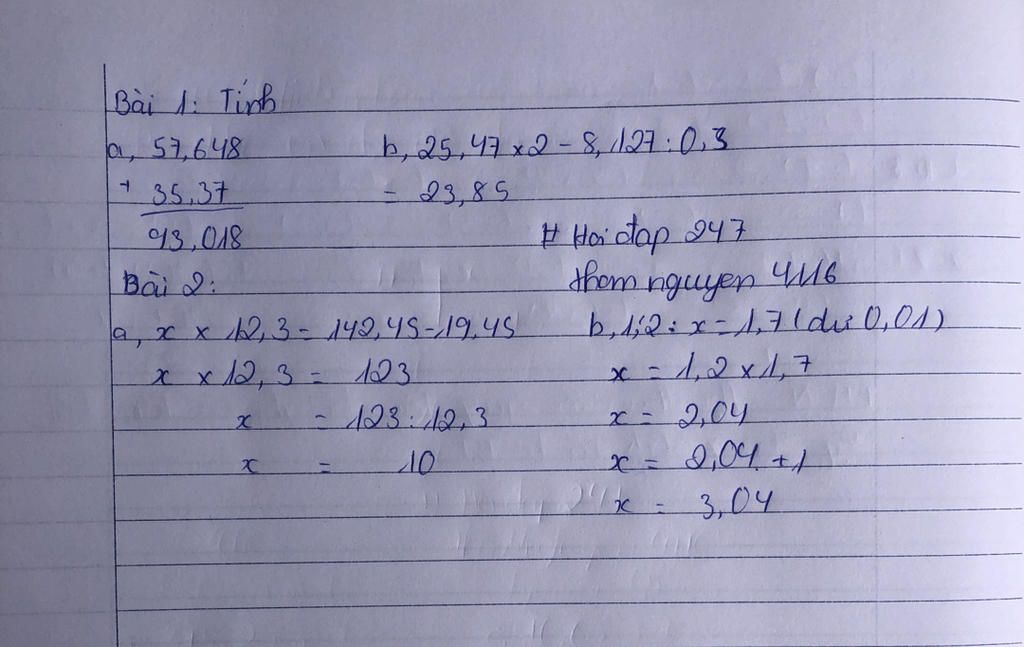 Bài 1: Tính
a, 57,648 b, 25,47 x 2 - 8,127 : 0,3
+ 35,37 = 23,85
93,018 # Hoi đap 247
Bài 2: thom nguyen 4116
a, x x 12,3 = 142,45 - 19,45 b, 1,2 : x = 1,7 (dư 0,01)
x x 12,3 = 123 x = 1,2 x 1,7
x = 123 : 12,3 x = 2,04
x = 10 x = 2,04 + 1
x = 3,04